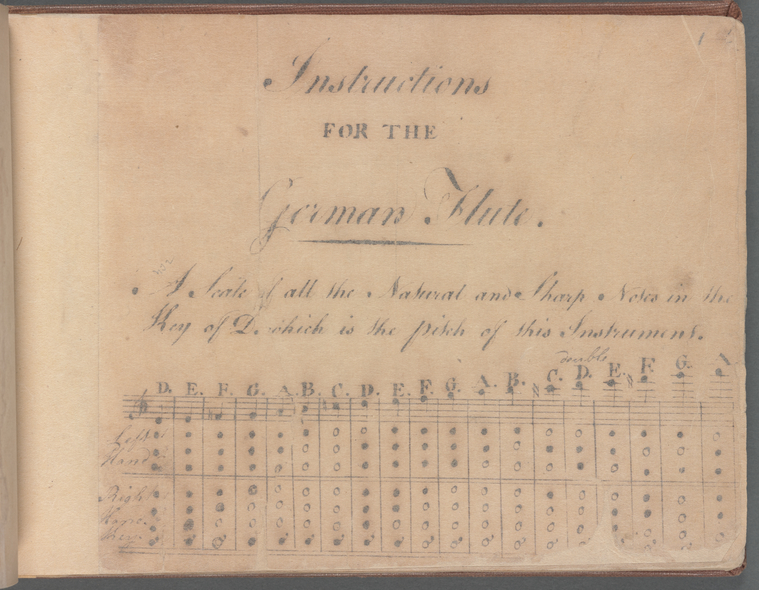 Instructions
FOR THE
German Flute.
A Scale of all the Natural and Sharp Notes in the
Key of D. which is the pitch of this Instrument.
double
D. E. F. G. A. B. C. D. E. F. G. A. B. C. D. E. F. G. A
Left
Hand
Right